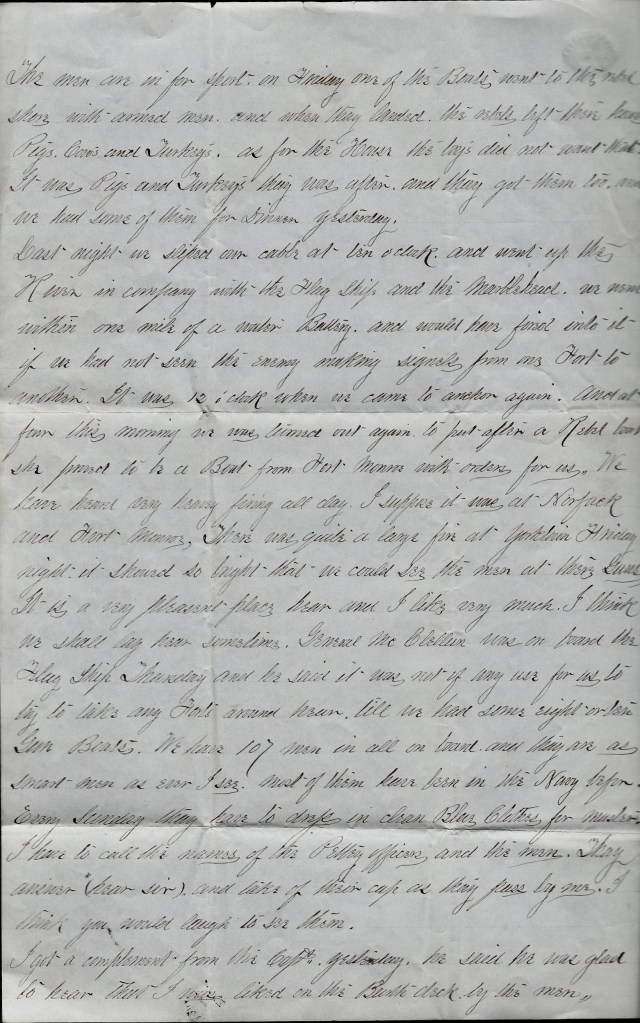 The men are in for sport. on Friday one of the Boats went to the rebel
shore with armed men. and when they landed. the rebels left there
Pigs. Cows and Turkeys. as for the House the boys did not want that.
It was Pigs and Turkeys they was after. and they got them too. and
we had some of them for Dinner yesterday.
Last night we sliped our cable at ten o'clock. and went up the
River in company with the Flag Ship and the Marblehead. we went
within one mile of a water Battery. and would have fired into it
if we had not seen the enemy making signels from one Fort to
another. It was 12 o'clock when we came to anchor again. and at
four this morning we was turned out again to put after a Rebel boat
she proved to be a Boat from Fort Monroe with orders for us. We
have heard very heavy firing all day. I suppose it was at Norfock
and Fort Monroe. There was quite a large fire at Yorktown Friday
night it showed so bright that we could see the men at there Guns
It is a very pleasent place hear and I like very much. I think
we shall lay hear sometime. General Mc Clellan was on board the
Flag Ship Thursday and he said it was not of any use for us to
try to take any Forts around hear. till we had some eight or ten
Gun Boats. We have 107 men in all on board. and they are as
smart men as ever I see. most of them have been in the Navy befor.
Every Sunday they have to dress in clean Blue Clothes for muster.
I have to call the names of the Pettey officers and the men. They
answer (hear sir). and take of their cap as they pass by me. I
think you would laugh to see them.
I got a complement from the Capt. yesterday. he said he was glad
to hear that I was liked on the Burth deck by the men.